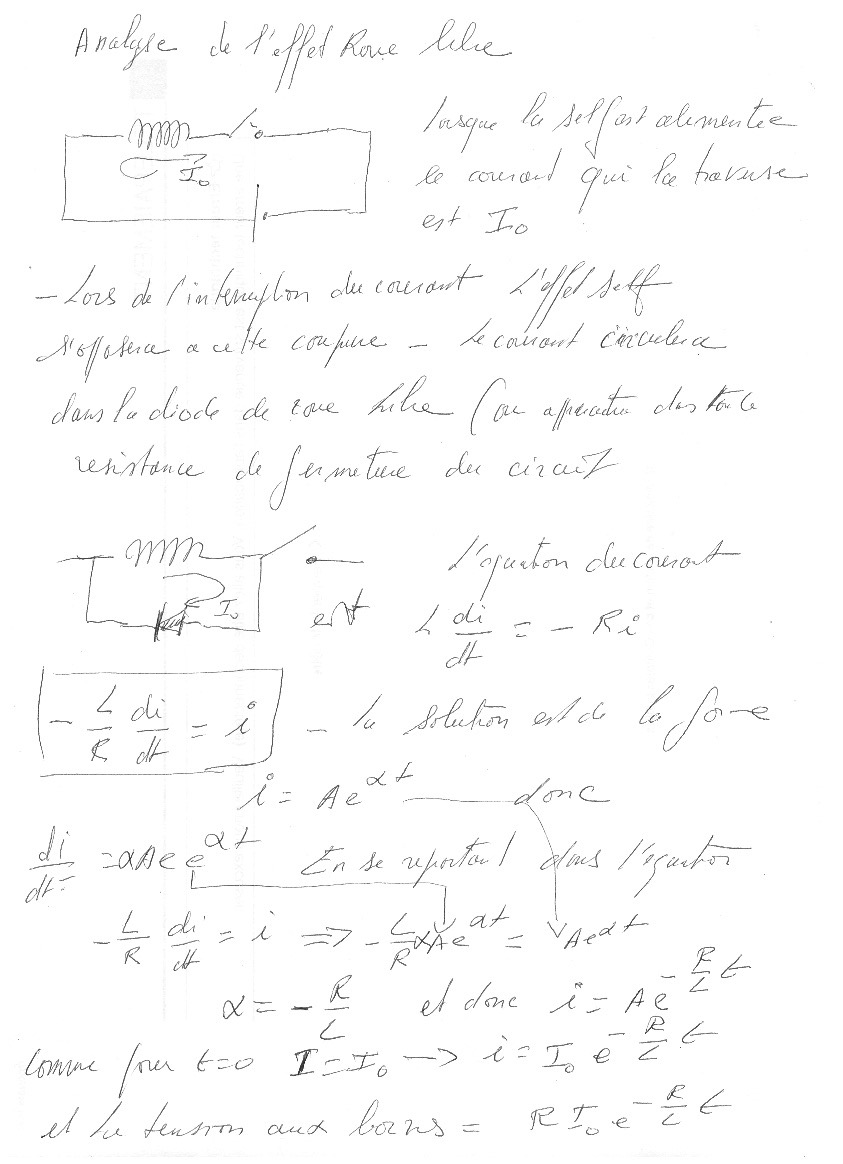 Analyse de l'effet Roue libre
Lorsque la self est alimentee
le courant qui la traverse
est I₀
I₀
- Lors de l'interruption du courant L'effet self
s'opposera a cette coupure - Le courant circulera
dans la diode de roue libre (ou apparaitra dans toute
resistance de fermeture du circuit
I₀
L'equation du courant
est L di/dt = - Ri
- L/R di/dt = i - La solution est de la forme
i = Ae^αt donc
di/dt = αAe e^αt En se reportant dans l'equation
- L/R di/dt = i => - L/R αAe^αt = Ae^αt
α = - R/L et donc i = Ae^-R/L t
Comme pour t=0 I = I₀ -> i = I₀ e^-R/L t
et la tension aux bornes = R I₀ e^-R/L t